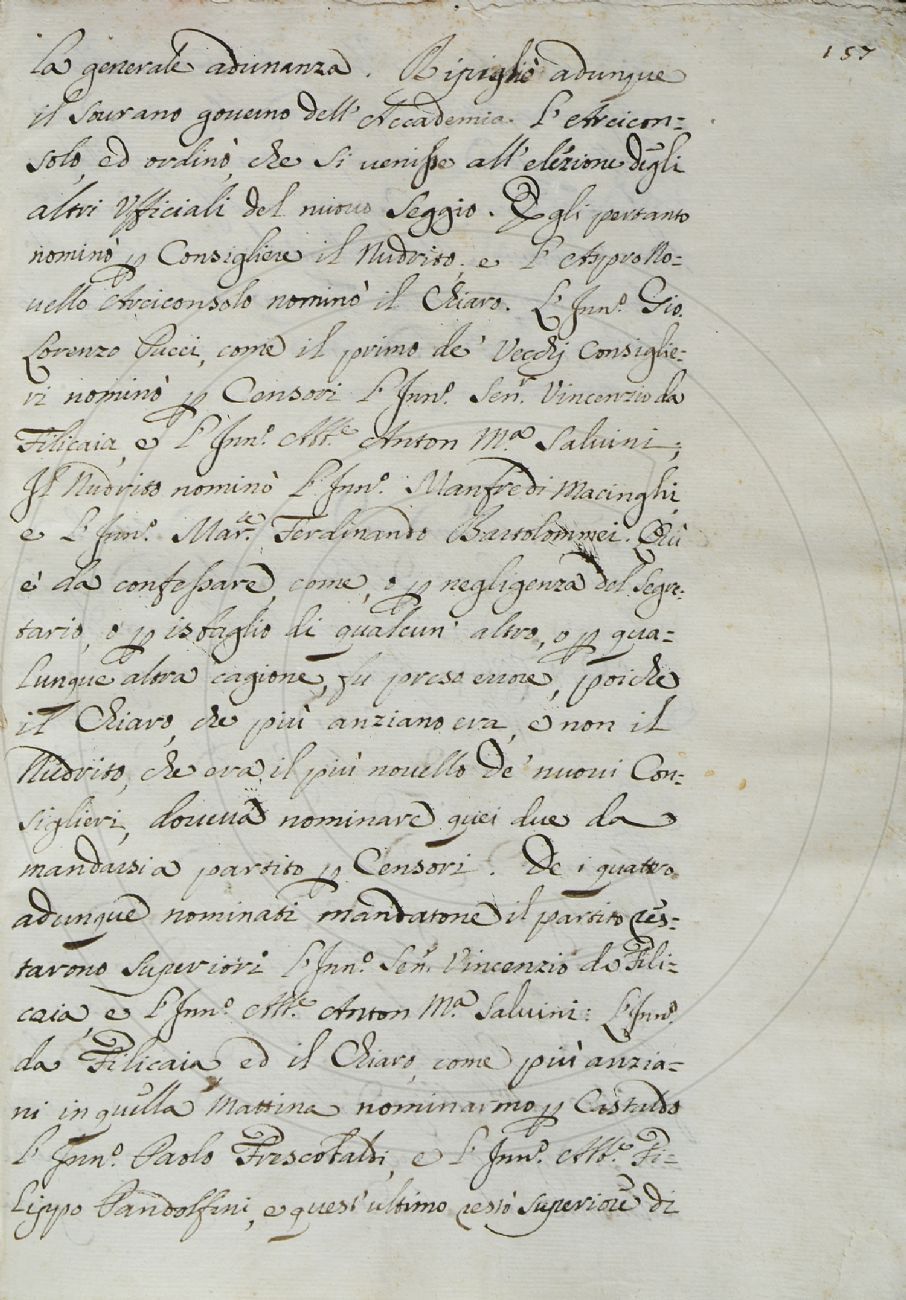 157
la generale adunanza. Ripigliò adunque
il sovrano governo dell' Accademia l'Arcicon=
solo, ed ordinò, che si venisse all' elezione degli
altri Vfficiali del nuovo Seggio. Egli pertanto
nominò p Consigliere il Nudrito, e l'Appro No=
vello Arciconsolo nominò il Chiaro. L'Inn.º Gio.
Lorenzo Pucci, come il primo de' Vecchj Consiglie=
ri nominò p Censori l'Inn.º Sen.r Vincenzio da
Filicaia, e l'Inn.º Ab.te Anton M.a Salvini;
Il Nudrito nominò l'Inn.º Manfredi Macinghi,
e l'Inn.º Mar.te Ferdinando Bartolommei. Quì
è da confessare, come, o p negligenza del Segre=
tario, o p isbaglio di qualcun' altro, o p qua=
lunque altra cagione, fu preso errore, poiche
il Chiaro, che più anziano era, e non il
Nudrito, che era il più novello de' nuovi Con=
siglieri, doveva nominare quei due da
mandarsi a partito p Censori. De i quattro
adunque nominati mandatone il partito res=
tarono superiori l'Inn.º Sen.r Vincenzio da Fili=
caia, e l'Inn.º Ab.te Anton M.a Salvini: L'Inn.º
da Filicaia ed il Chiaro, come più anzia=
ni in quella Mattina nominarmo p Castaldo
l'Inn.º Paolo Frescobaldi, e l'Inn.º Ab.te Fi=
lippo Pandolfini, e quest' ultimo restò superiore di